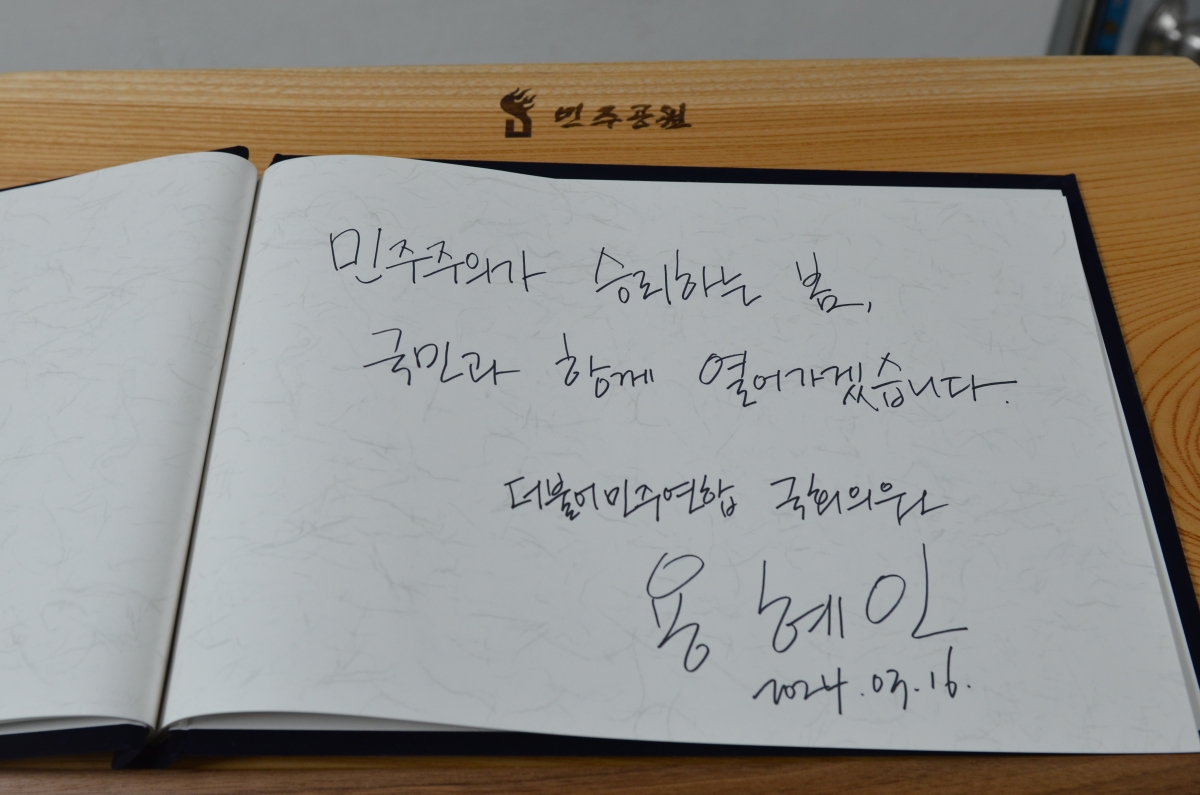 민주공원
민주주의가 승리하는 봄,
국민과 함께 열어가겠습니다.
더불어민주연합 국회의원
용혜인
2024.03.16.